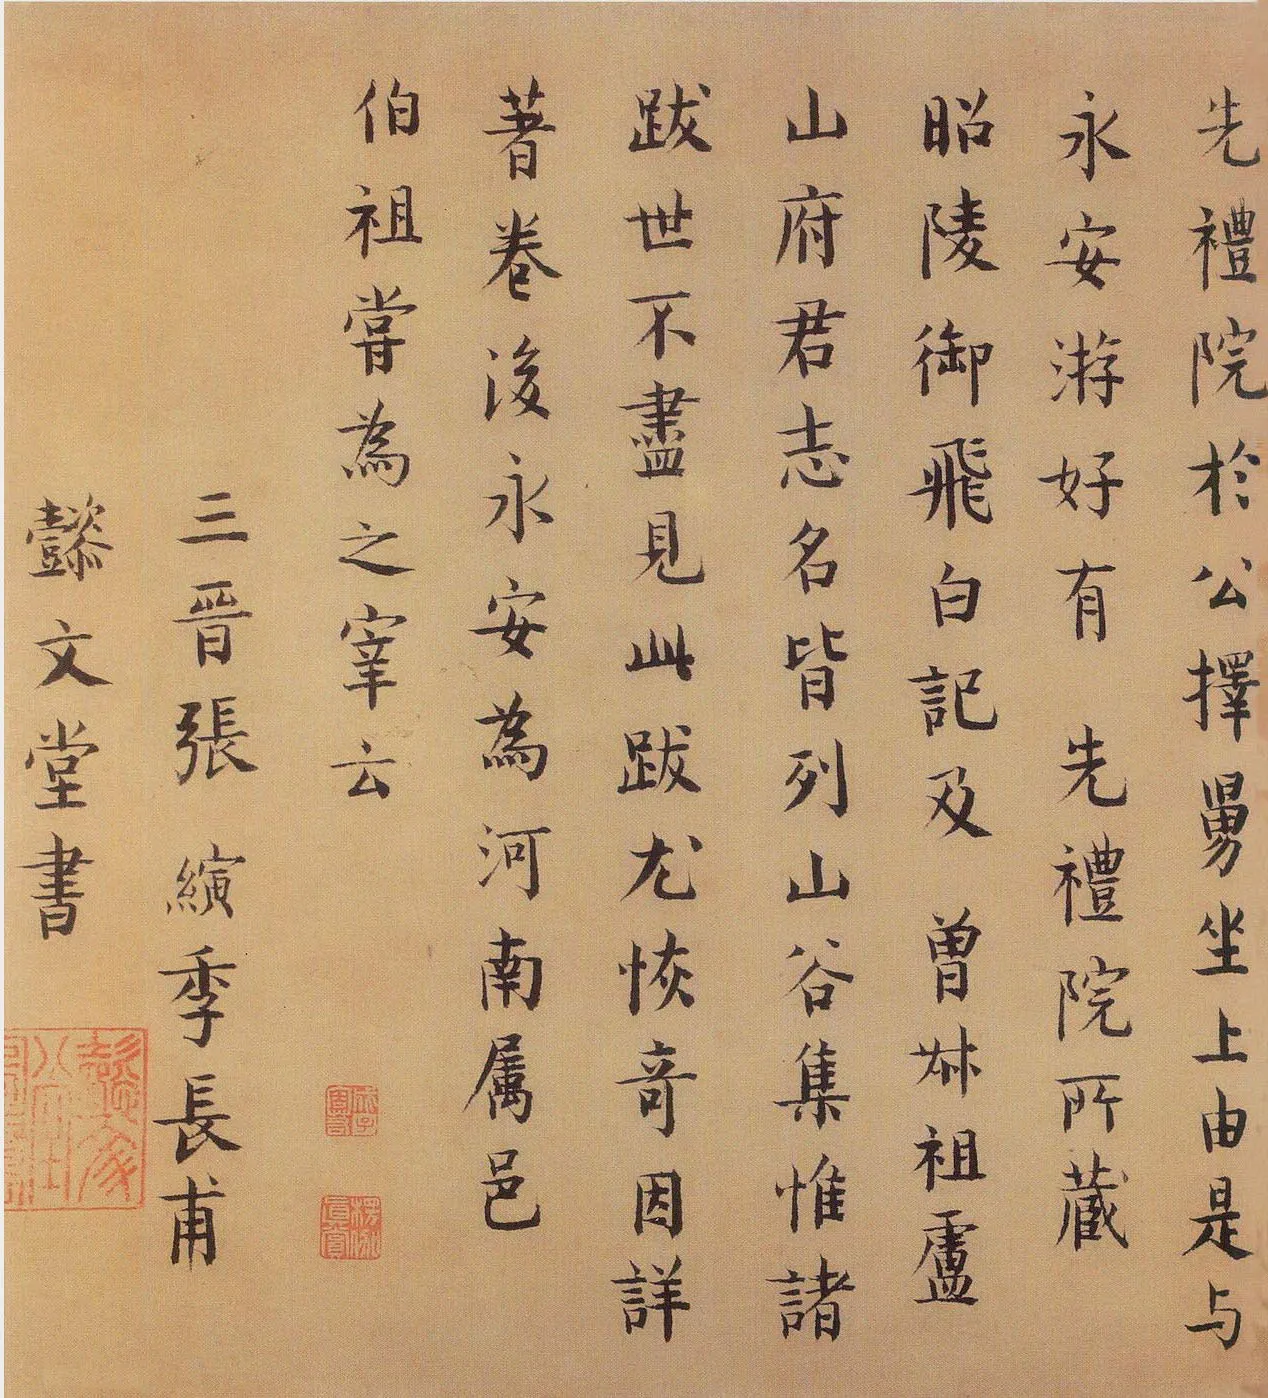 先禮院於公擇舅坐上由是与
永安游好有 先禮院所藏
昭陵御飛白記及 曾叔祖盧
山府君志名皆列山谷集惟諸
跋世不盡見此跋尤恢奇因詳
著卷後永安為河南屬邑
伯祖嘗為之宰云
三晉張 縯季長甫
懿文堂書